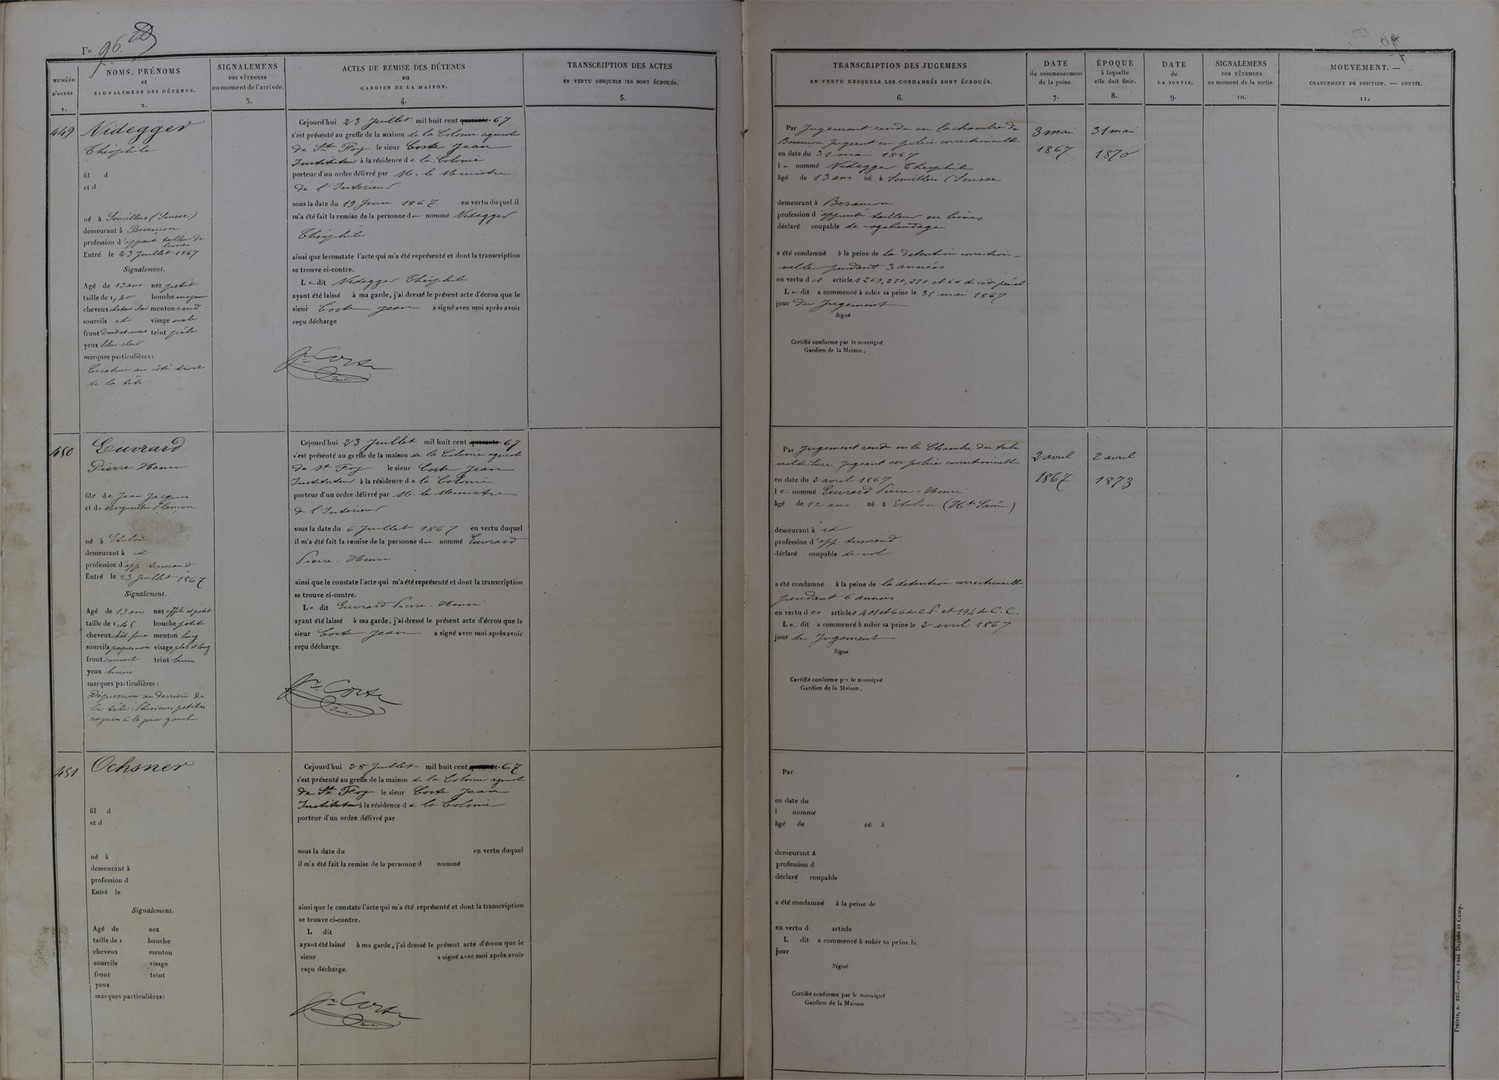 Fo 96.
NUMÉROS D'ORDRE 1.
NOMS, PRÉNOMS
et
SIGNALEMENS DES DÉTENUS.
2.
SIGNALEMENS
DES VÊTEMENS
au moment de l'arrivée.
3.
ACTES DE REMISE DES DÉTENUS
au
GARDIEN DE LA MAISON.
4.
TRANSCRIPTION DES ACTES
EN VERTU DESQUELS ILS SONT ÉCROUÉS.
5.
TRANSCRIPTION DES JUGEMENS
EN VERTU DESQUELS LES CONDAMNÉS SONT ÉCROUÉS.
6.
DATE
du commencement
de la peine.
7.
ÉPOQUE
à laquelle
elle doit finir.
8.
DATE
de
LA SORTIE.
9.
SIGNALEMENS
DES VÊTEMENS
au moment de la sortie.
10.
MOUVEMENT. —
CHANGEMENT DE POSITION. — SORTIE.
11.
449
Nidegger
Théophile
fil d
et d
né à Sonvillers (Suisse)
demeurant à Besançon
profession d'apprenti tailleur de
limes
Entré le 23 Juillet 1867
Signalement.
Agé de 13 ans nez petit
taille de 1,40 bouche moyenne
cheveux menton rond
sourcils id visage ovale
front teint pâle
yeux bleu clair
marques particulières :
Cicatrice au côté droit
de la tête
Cejourd'hui 23 Juillet mil huit cent 67
s'est présenté au greffe de la maison de la Colonie agricole
de Ste Foy le sieur Corte Jean
Instituteur à la résidence de la Colonie
porteur d'un ordre délivré par M. le Ministre
de l'Intérieur
sous la date du 19 Juin 1867 en vertu duquel il
m'a été fait la remise de la personne du nommé Nidegger
Théophile
ainsi que le constate l'acte qui m'a été représenté et dont la transcription
se trouve ci-contre.
Le dit Nidegger Théophile
ayant été laissé à ma garde, j'ai dressé le présent acte d'écrou que le
sieur Corte Jean a signé avec moi après avoir
reçu décharge
Jn Corte
Par Jugement rendu en la chambre de
Besançon jugeant en police correctionnelle
en date du 31 mai 1867
le nommé Nidegger Théophile
âgé de 13 ans né à Sonvillers (Suisse
demeurant à Besançon
profession d'apprenti tailleur en limes
déclaré coupable de vagabondage
a été condamné à la peine de la détention correction-
nelle pendant 3 années
en vertu des articles 269, 270, 271 et 66 du cod pénal
Le dit a commencé à subir sa peine le 31 mai 1867
jour du Jugement
Signé
Certifié conforme par le soussigné
Gardien de la Maison,
3 mai
1867
31 mai
1870
450
Euvrard
Pierre Henri
fils de Jean Jacques
et de Marguerite
né à
demeurant à id
profession d'app
Entré le 23 Juillet 1867
Signalement.
Agé de 13 ans nez effilé et petit
taille de 1,45 bouche petite
cheveux menton long
sourcils visage plat et long
front couvert teint brun
yeux bruns
marques particulières :
Dépression au derrière de
la tête. Plusieurs petites
à la joue gauche
Cejourd'hui 23 Juillet mil huit cent 67
s'est présenté au greffe de la maison de la Colonie agricole
de Ste Foy le sieur Corte Jean
Instituteur à la résidence de la Colonie
porteur d'un ordre délivré par M. le Ministre
de l'Intérieur
sous la date du 6 Juillet 1867 en vertu duquel
il m'a été fait la remise de la personne du nommé Euvrard
Pierre-Henri
ainsi que le constate l'acte qui m'a été représenté et dont la transcription
se trouve ci-contre.
Le dit Euvrard Pierre-Henri
ayant été laissé à ma garde, j'ai dressé le présent acte d'écrou que le
sieur Corte Jean a signé avec moi après avoir
reçu décharge.
Jn Corte
Par Jugement rendu en la Chambre du trib
jugeant en police correctionnelle
en date du 2 avril 1867
le nommé Euvrard Pierre-Henri
âgé de 12 ans né à (Hte Saône)
demeurant à id
profession d'app
déclaré coupable de vol
a été condamné à la peine de la détention correctionnelle
pendant 6 années
en vertu des articles 401 et 66 du C. P. et 194 du C. C.
Le dit a commencé à subir sa peine le 2 avril 1867
jour du Jugement
Signé
Certifié conforme par le soussigné
Gardien de la Maison,
2 avril
1867
2 avril
1873
451
Ochsner
fil d
et d
né à
demeurant à
profession d
Entré le
Signalement.
Agé de nez
taille de 1 bouche
cheveux menton
sourcils visage
front teint
yeux
marques particulières :
Cejourd'hui 28 Juillet mil huit cent 67
s'est présenté au greffe de la maison de la Colonie agricole
de Ste Foy le sieur Corte Jean
Instituteur à la résidence de la Colonie
porteur d'un ordre délivré par
sous la date du en vertu duquel
il m'a été fait la remise de la personne d nommé
ainsi que le constate l'acte qui m'a été représenté et dont la transcription
se trouve ci-contre.
L dit
ayant été laissé à ma garde, j'ai dressé le présent acte d'écrou que le
sieur a signé avec moi après avoir
reçu décharge.
Jn Corte
Par
en date du
l nommé
âgé de né à
demeurant à
profession d
déclaré coupable
a été condamné à la peine de
en vertu d article
L dit a commencé à subir sa peine le
jour
Signé
Certifié conforme par le soussigné
Gardien de la Maison